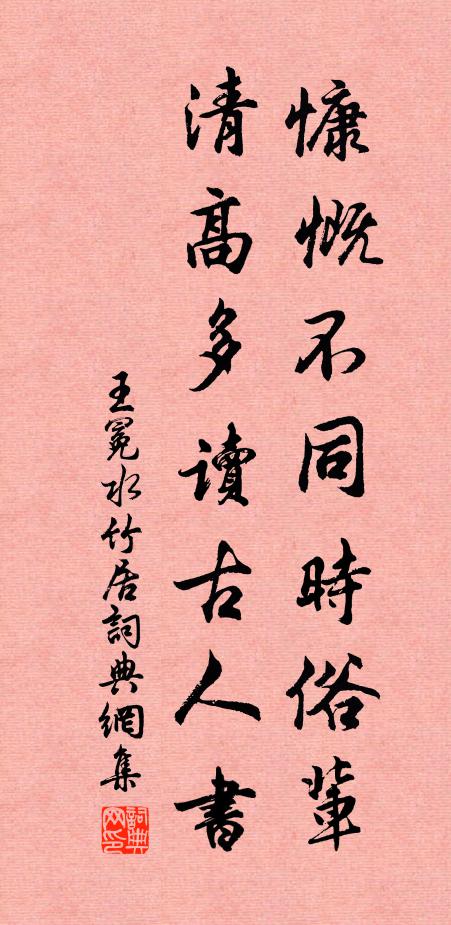 慷慨不同時俗輩
清高多讀古人書
王冕水竹居詞典網集
詞典網印